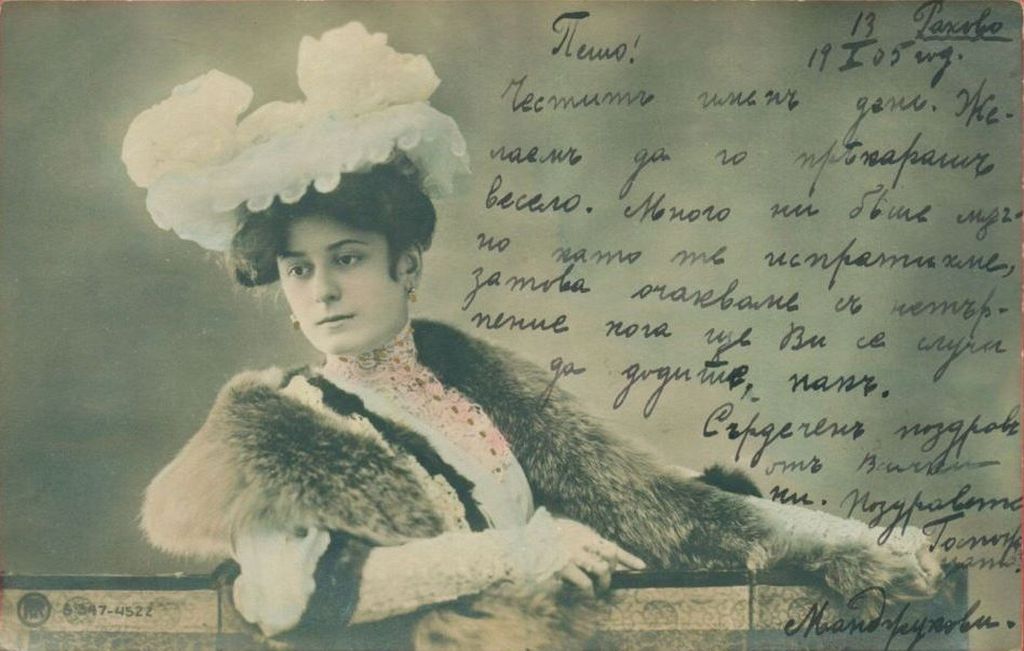 Пешо!
13 Рахово
19 I 05 год.
Честитъ именъ день. Же-
лаемъ да го прѣкарашъ
весело. Много ни бѣше мѫч-
но като те испратихме,
затова очакваме съ нетър-
пение кога ще Ви се случи
да додите, какъ.
Сърдеченъ поздравъ
отъ
ни. Поздравете
Мандрукови.
6347-4522